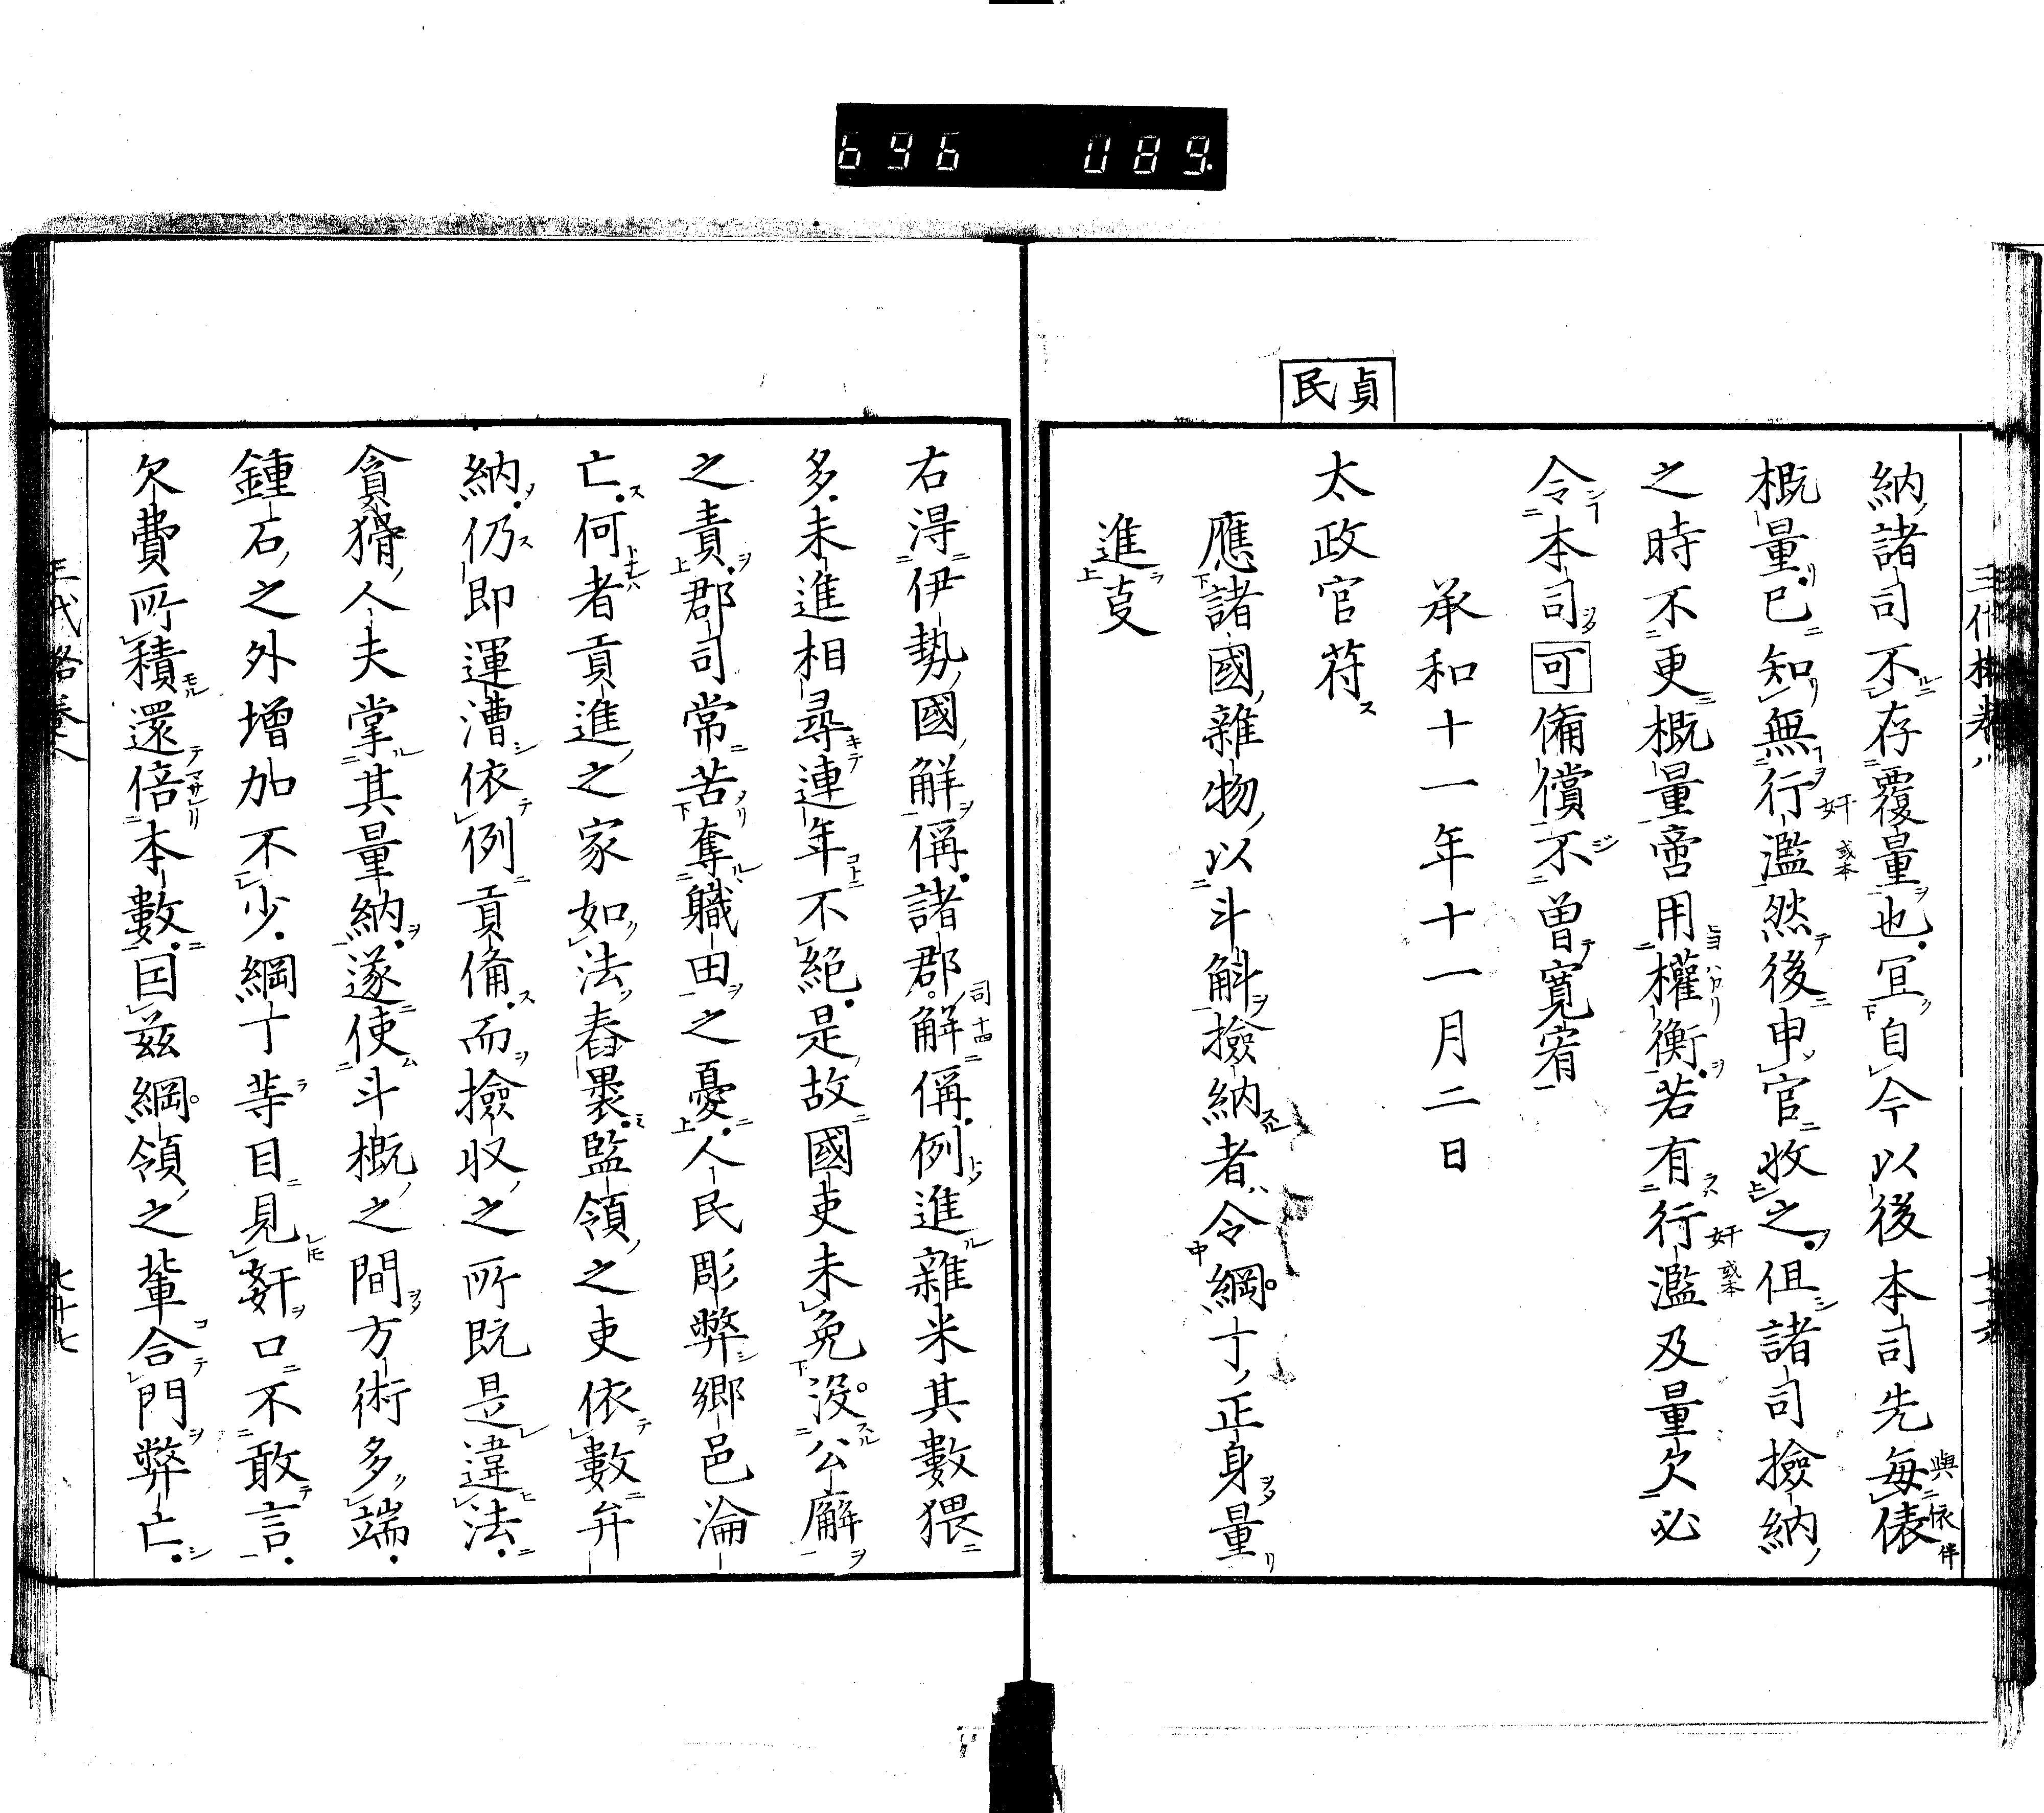 696 089.
貞民
納諸司不存覆量也宜自今以後本司先毎俵
概量已知無行濫然後申官收之但諸司撿納
之時不更概量啻用權衡若有行濫及量欠必
令本司可備償不曽寛宥
承和十一年十一月二日
太政官符
應諸國雜物以斗斛撿納者令綱丁正身量
進亊
右得伊勢國解偁諸郡解偁例進雜米其數猥
多未進相尋連年不絶是故國吏未免没公廨
之責郡司常苦奪職田之憂人民彫弊郷邑淪
亡何者貢進之家如法舂褁監領之吏依數弁
納仍即運漕依例貢備而撿収之所既是違法
貪猾人夫掌其量納遂使斗概之間方術多端
鍾石之外増加不少綱丁等目見姧口不敢言
欠費所積還倍本數因茲綱領之輩合門弊亡
三代格卷八